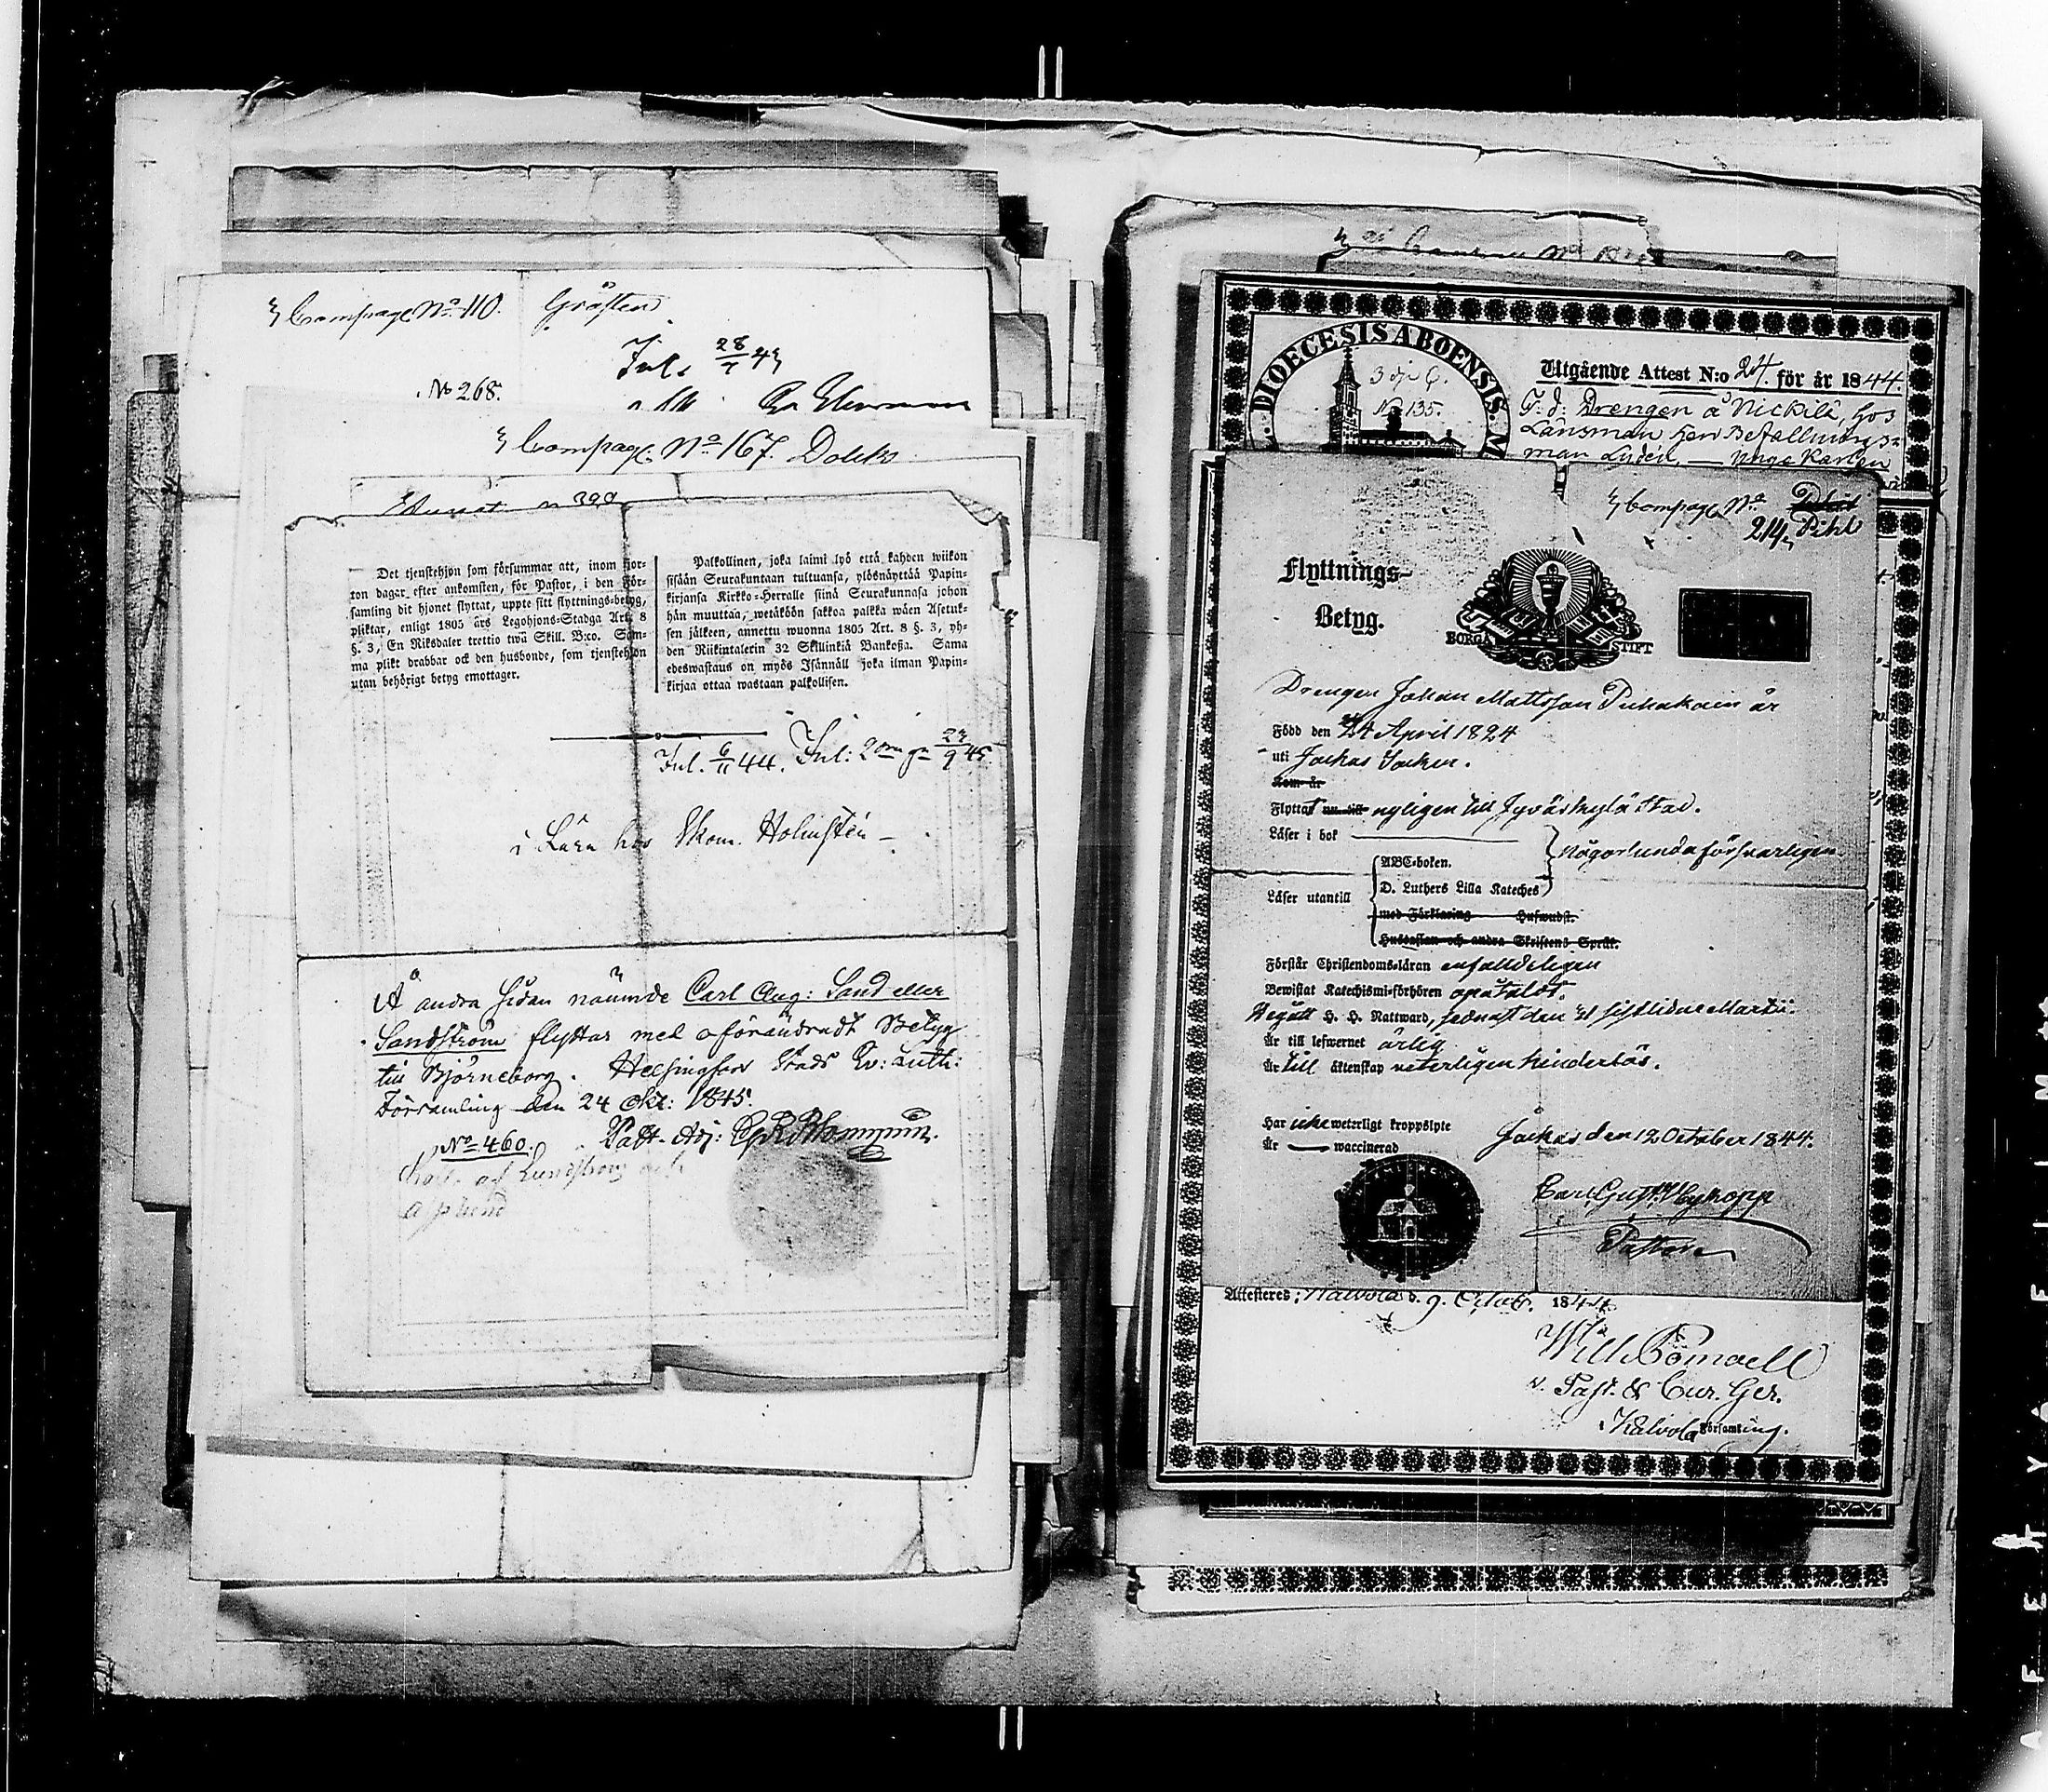 Compagn. No 110. Gråsten
Inl. 28/7 43
No 268.
Compagn. No 167. Dolck
Det tjenstehjon som försummar att, inom fjor-
ton dagar efter ankomsten, för Pastor, i den För-
samling dit hjonet flyttat, uppte sitt flyttnings-betyg,
pliktar, enligt 1805 års Legohjons-Stadga Art. 8
§. 3, En Riksdaler trettio twå Skill. B:co. Sam-
ma plikt drabbar ock den husbonde, som tjenstehjon
utan behörigt betyg emottager.
Palkollinen, joka laimi lyö että kahden wiikon
sisään Seurakuntaan tultuansa, ylösnäyttää Papin-
kirjansa Kirkko-Herralle siinä Seurakunnasa johon
hän muuttaa, wetäköön sakkoa palkka wäen Asetuk-
sen jälkeen, annettu wuonna 1805 Art. 8 §. 3, yh-
den Riikintalerin 32 Skillinkiä Bankosa. Sama
edeswastaus on myös Isännäll joka ilman Papin-
kirjaa ottaa wastaan palkollisen.
Inl. 6/11 44. Inl: 2 gn 23/9 45.
i Lära hos Skom. Holmstén
Å andra sidan nämnde Carl Aug: Sand eller
Sandström flyttar med oförändradt Betyg
till Björneborg. Helsingfors Stads Ev: Luth:
Församling den 24 Okt: 1845.
No 460. Past. Adj:
DIOECESIS ABOENSIS.
3 6.
No 135.
Utgående Attest N:o 24. för år 1844.
T. d: Drengen å Nickilä, hos
Länsman Herr Befallnings-
man Lydén, — Unge Karlen
Compagn. No
214 Pihl
Flyttnings-
Betyg.
BORGÅ STIFT
Drengen Johan Mattsson Puhakain är
Född den 24 April 1824
uti Jockas Socken.
Kom år
Flyttat nu till nyligen till Jyväskylä stad.
Läser i bok
någorlunda försvarligen
Läser utantill
ABC-boken.
D. Luthers Lilla Kateches
med Förklaring Hufwudst.
Hustaflan och andra Skriftens Språk.
Förstår Christendoms-läran enfaldeligen
Bewistat Katechismi-förhören opåtaldt.
Begått H. H. Nattward, sednast den 31 sistlidne Martii.
Är till lefwernet ärlig
Är till äktenskap veterligen hinderlös.
Har icke weterligt kroppslyte
Är — waccinerad
Jockas den 12 October 1844.
Carl Gust. Wykopp
Pastor
Attesteres: Kalvola d. 9. Octob. 1844
Wilh.
v. Past. & Cur. Ger.
Kalvola Församling.